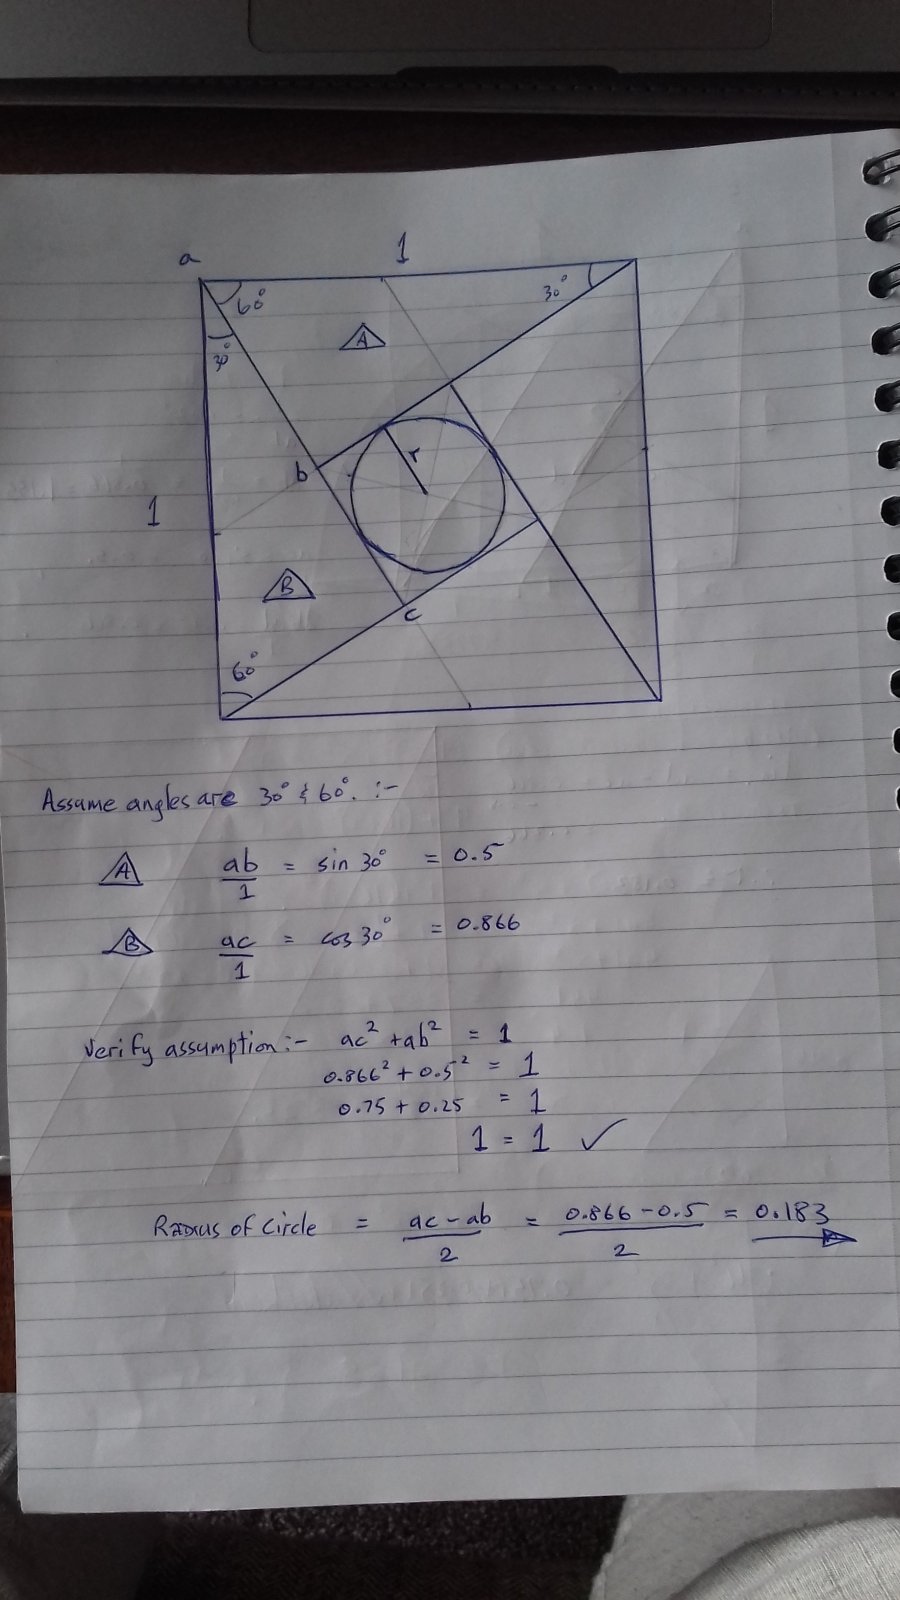 a 1
60° 30°
A
30°
b r
1
B
c
60°
Assume angles are 30° & 60°. :-
A ab/1 = sin 30° = 0.5
B ac/1 = cos 30° = 0.866
Verify assumption :- ac² + ab² = 1
0.866² + 0.5² = 1
0.75 + 0.25 = 1
1 = 1 ✓
Radius of Circle = ac - ab / 2 = 0.866 - 0.5 / 2 = 0.183